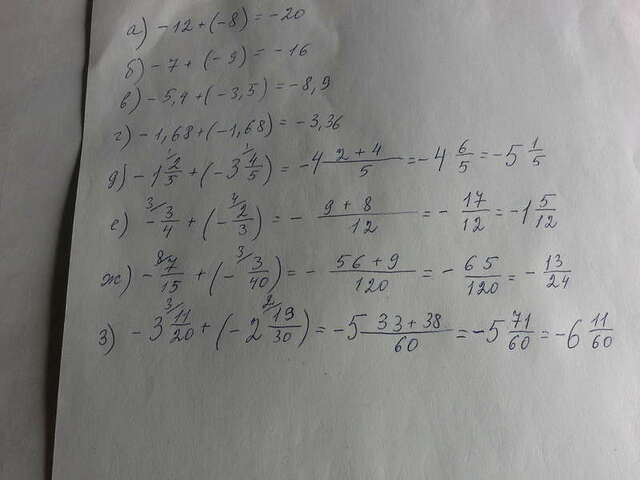 а) -12 + (-8) = -20
б) -7 + (-9) = -16
в) -5,4 + (-3,5) = -8,9
г) -1,68 + (-1,68) = -3,36
д) -1 2/5 + (-3 4/5) = -4 (2+4)/5 = -4 6/5 = -5 1/5
е) -3/4 + (-2/3) = - (9+8)/12 = - 17/12 = -1 5/12
ж) -7/15 + (-3/40) = - (56+9)/120 = - 65/120 = - 13/24
з) -3 11/20 + (-2 19/30) = -5 (33+38)/60 = -5 71/60 = -6 11/60